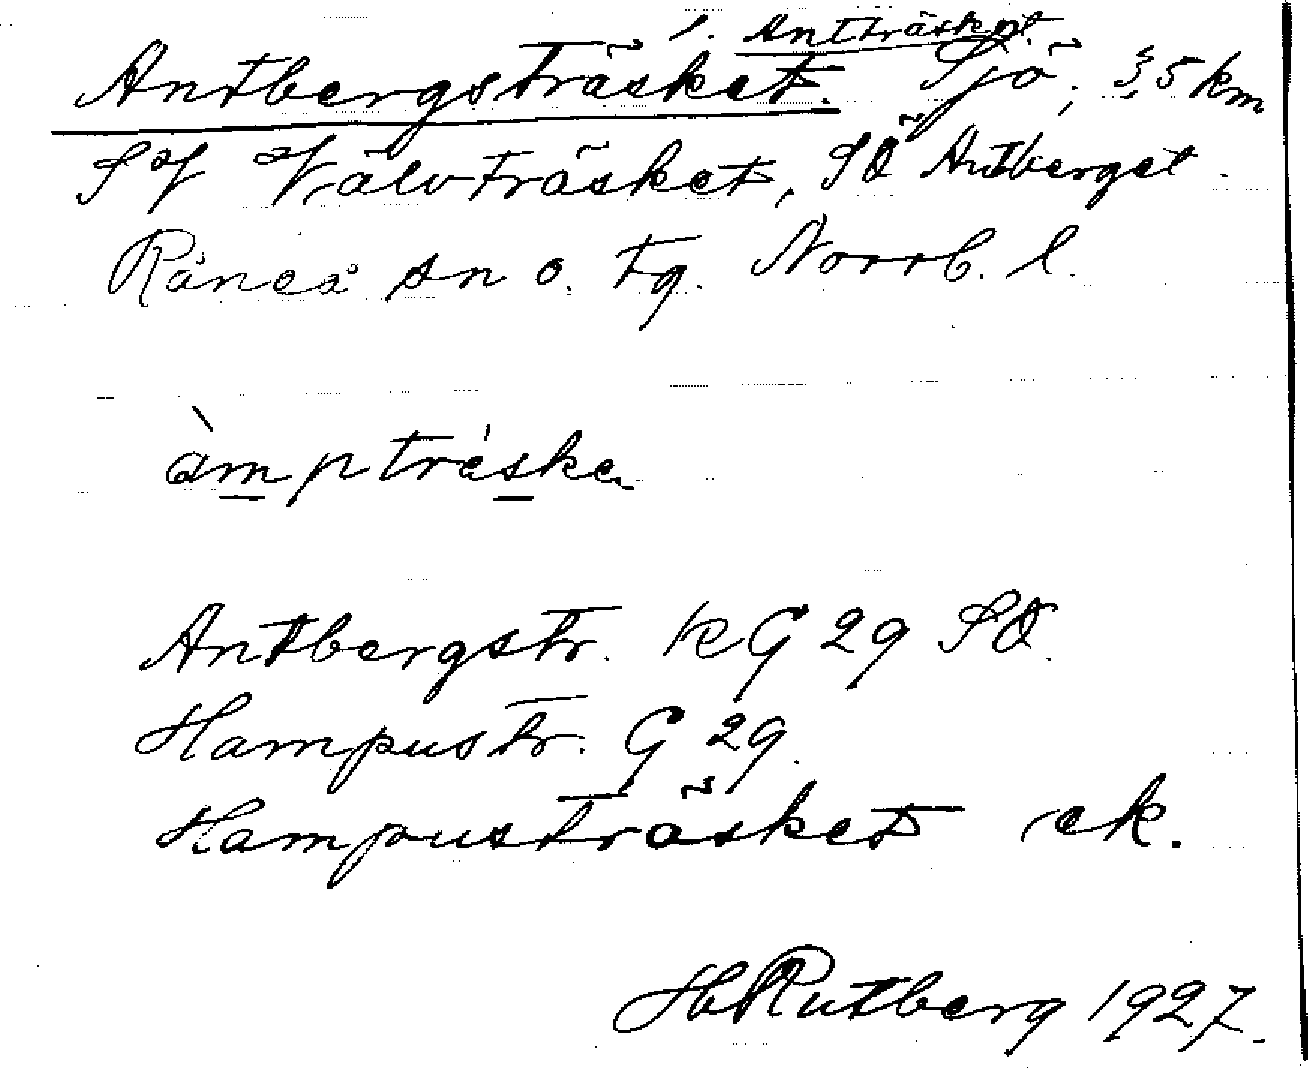 l. Antträsket.
Antbergsträsket. Sjö; 3,5 km
SV Välvträsket, SÖ Antberget.
Råneå sn o. tg. Norrb. l.
àmptrǻske
Antbergstr. kG 29 SÖ.
Hampustr. G 29.
Hampusträsket ek.
HRutberg 1927.